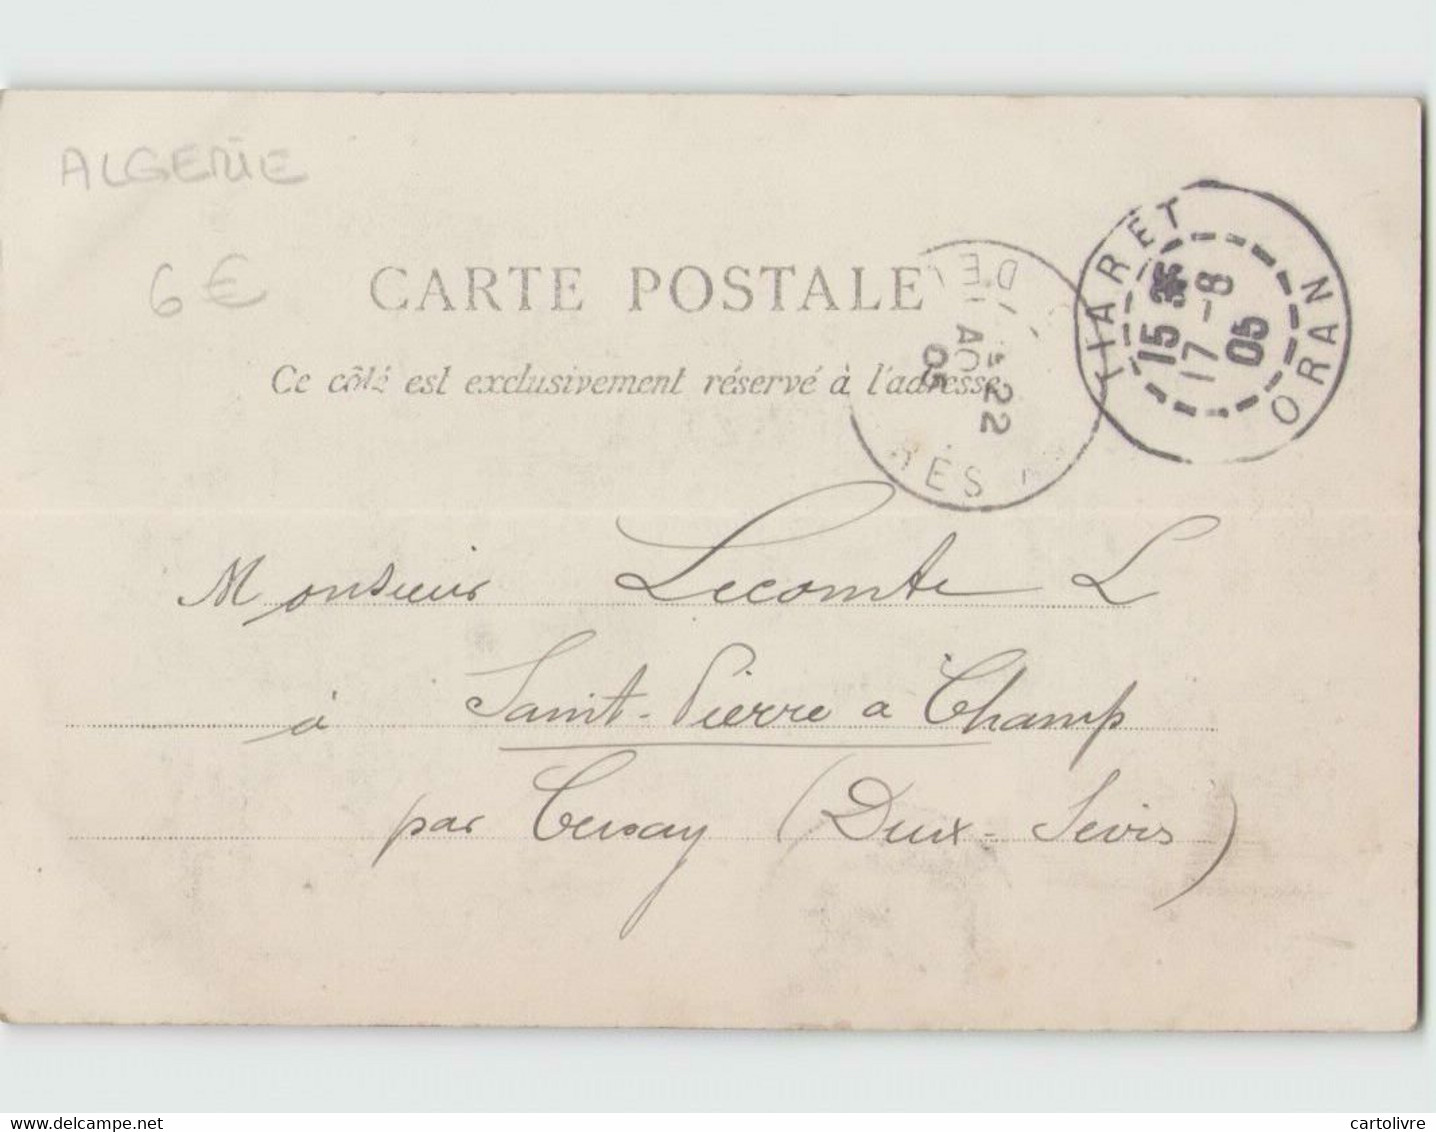 ALGERIE
6€
CARTE POSTALE
Ce côté est exclusivement réservé à l'adresse
TIARET
ORAN
15 35
17 - 8
05
22
AO
05
RES
Monsieur Lecomte L
à Saint-Pierre à Champ
par Cersay (Deux-Sèvres)
www.delcampe.net
cartolivre